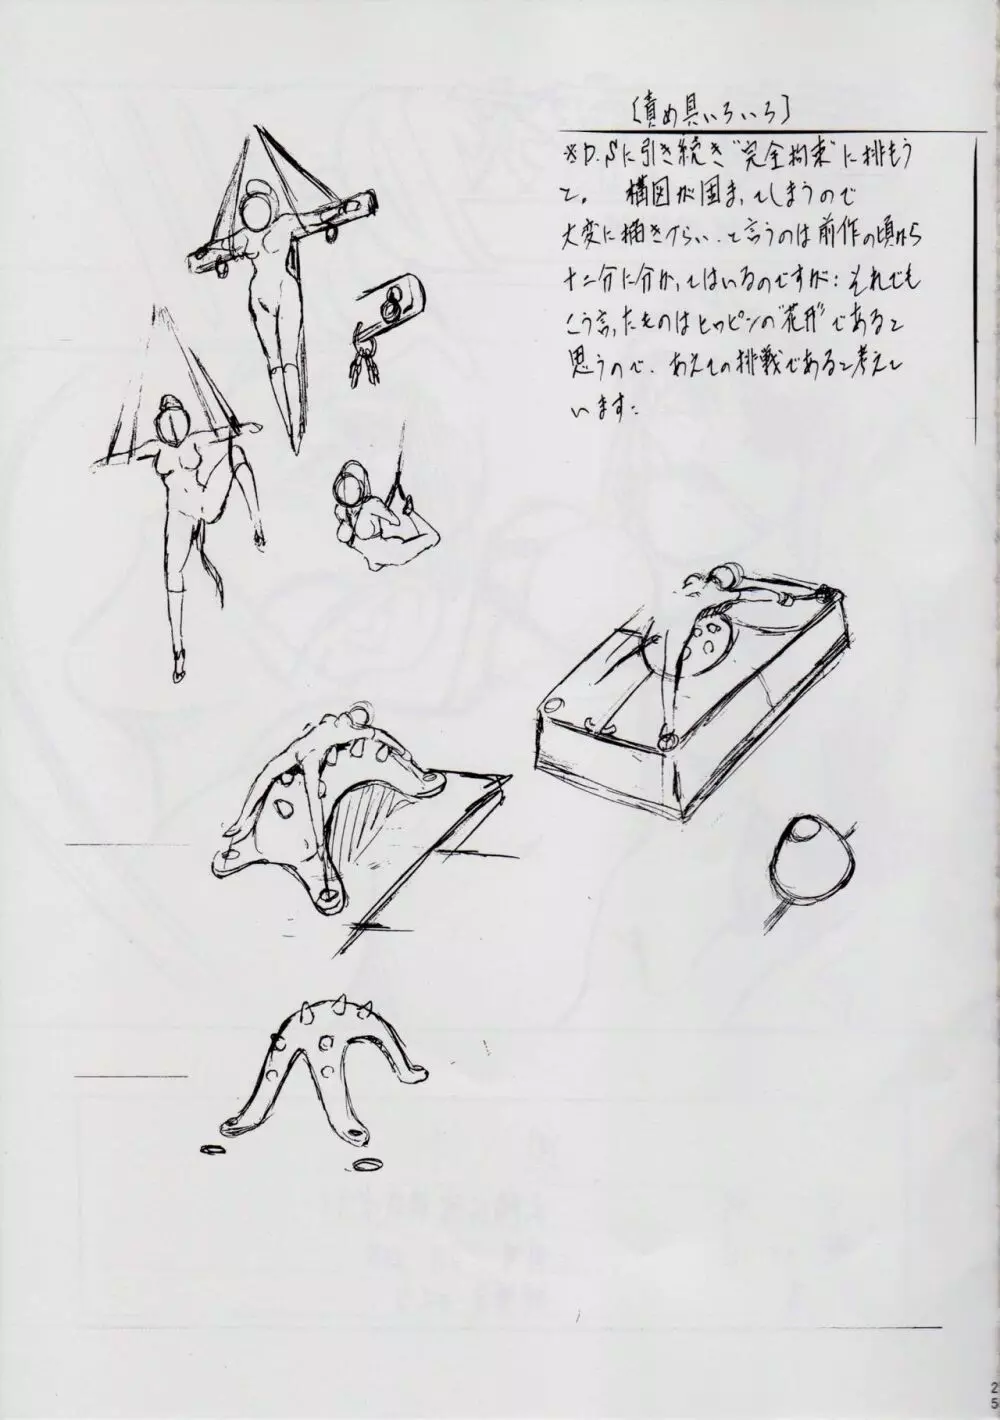 〔責め具いろいろ〕
※D.Sに引き続き“完全拘束”に挑もう
と。 構図が固まってしまうので
大変に描きづらい、と言うのは前作の頃から
十二分に分かってはいるのですが：それでも
こう言ったものはヒロピンの“花形”であると
思うので、あえての挑戦であると考えて
います：
25